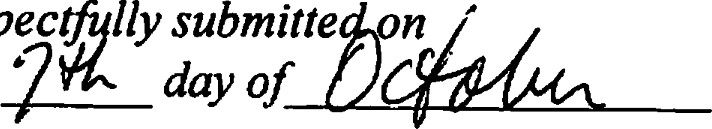 pectfully submitted on
7th day of October